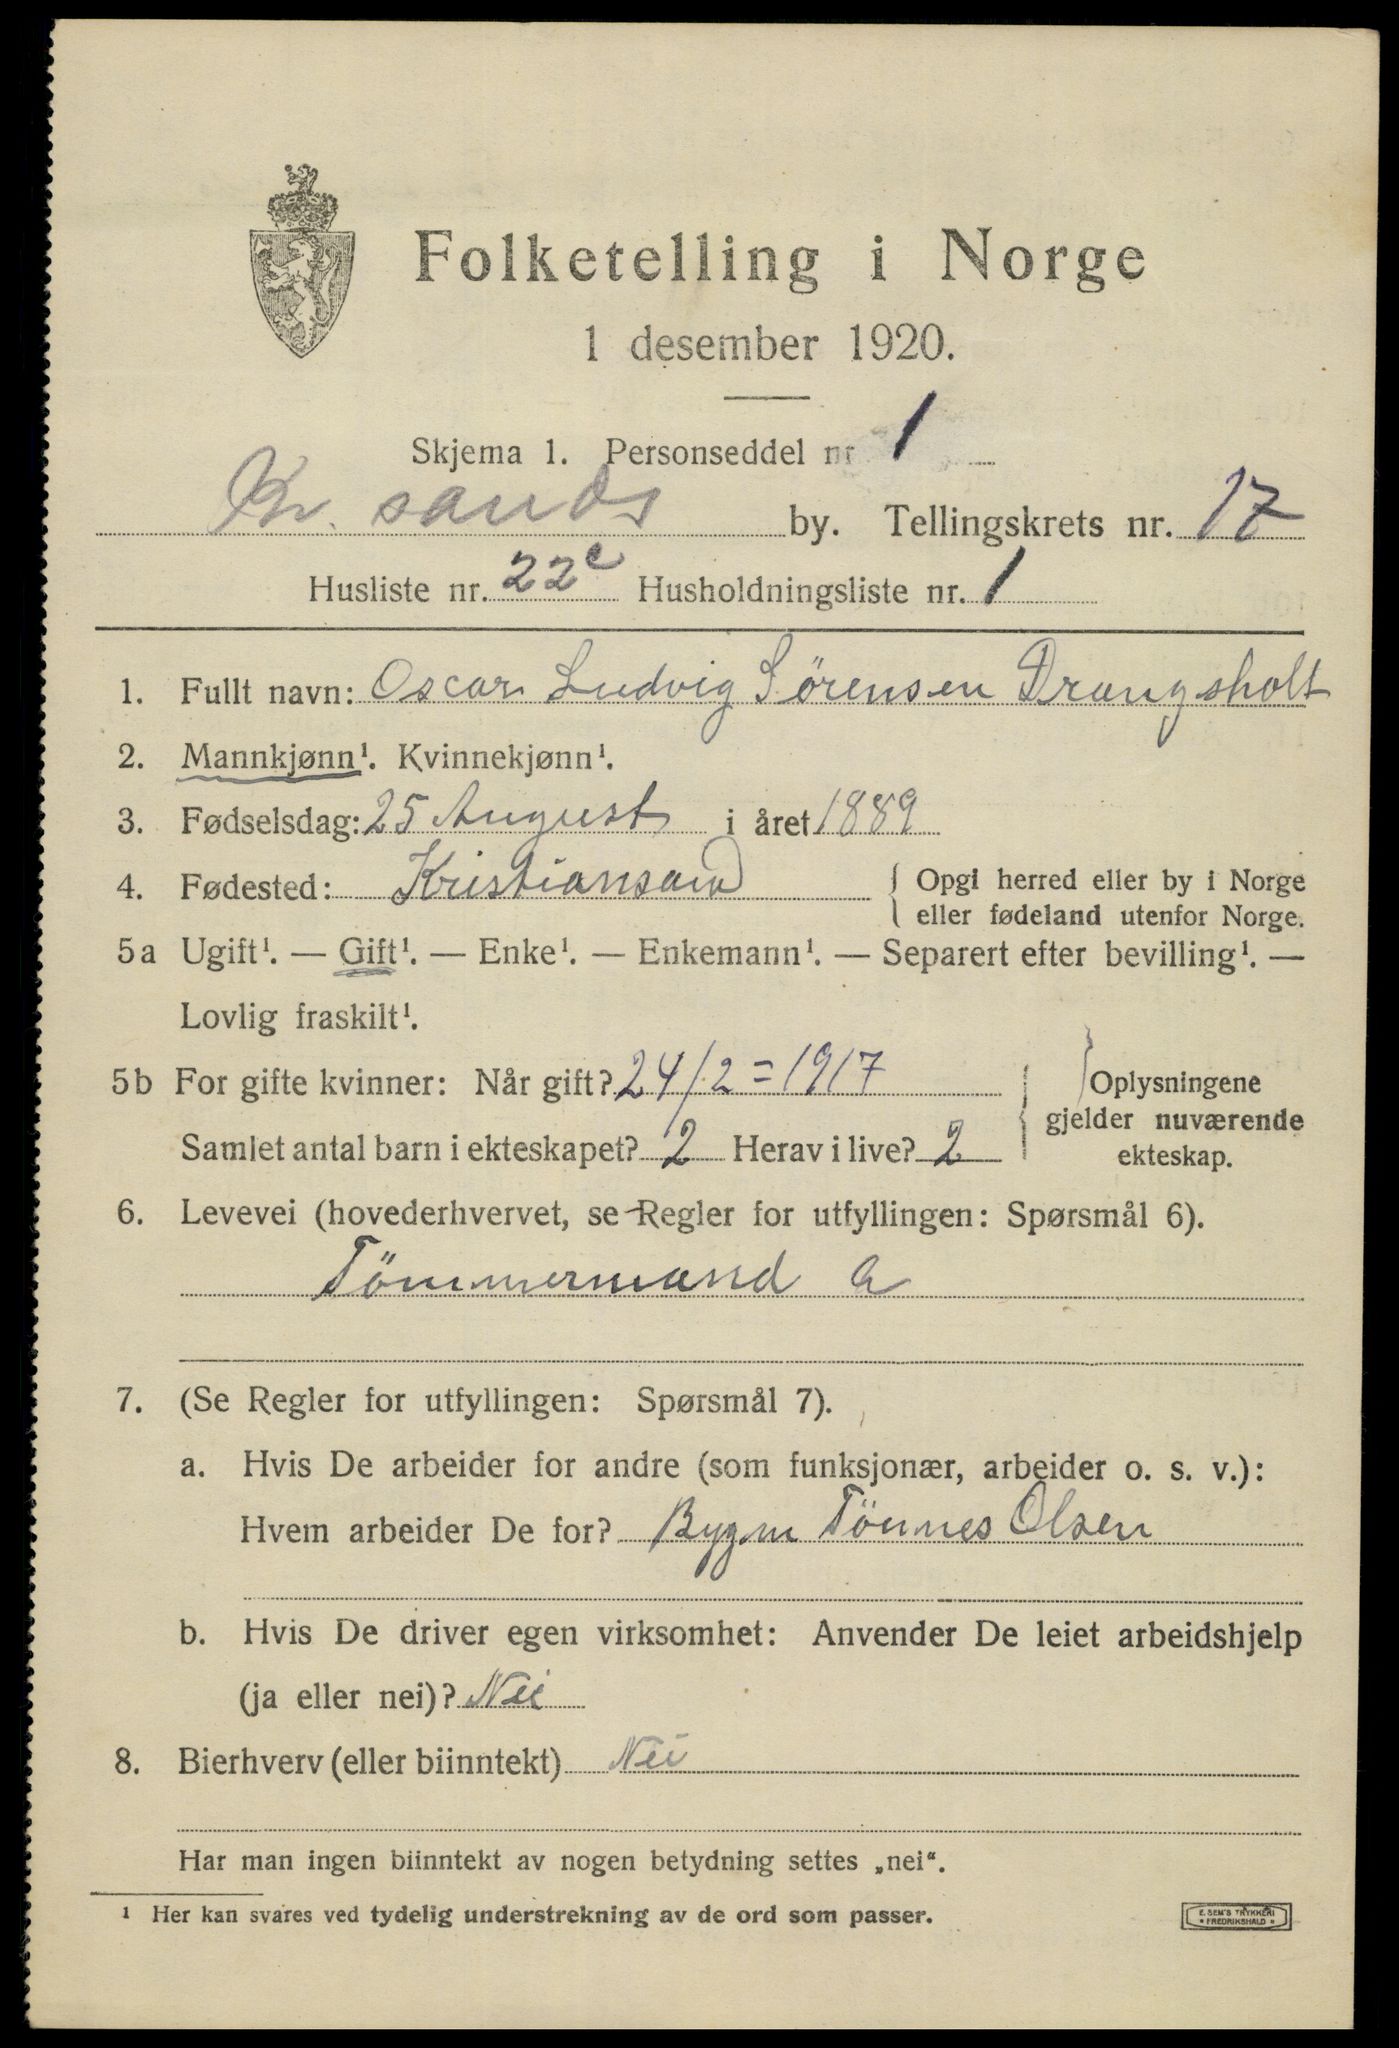 Folketelling i Norge
1 desember 1920.
Skjema 1. Personseddel nr 1
Kr. sands by. Tellingskrets nr. 17
Husliste nr. 22c Husholdningsliste nr. 1
1. Fullt navn: Oscar Ludvig Sörensen Drangsholt
2. Mannkjønn¹. Kvinnekjønn¹.
3. Fødselsdag: 25 August i året 1889
4. Fødested: Kristiansand { Opgi herred eller by i Norge
eller fødeland utenfor Norge.
5a Ugift¹. — Gift¹. — Enke¹. — Enkemann¹. — Separert efter bevilling¹. —
Lovlig fraskilt¹.
5b For gifte kvinner: Når gift? 24/2 = 1917
Samlet antal barn i ekteskapet? 2 Herav i live? 2
} Oplysningene
gjelder nuværende
ekteskap.
6. Levevei (hovederhvervet, se Regler for utfyllingen: Spørsmål 6).
Tömmermand a
7. (Se Regler for utfyllingen: Spørsmål 7).
a. Hvis De arbeider for andre (som funksjonær, arbeider o. s. v.):
Hvem arbeider De for? Bygm Tönnes Olsen
b. Hvis De driver egen virksomhet: Anvender De leiet arbeidshjelp
(ja eller nei)? Nei
8. Bierhverv (eller biinntekt) Nei
Har man ingen biinntekt av nogen betydning settes „nei“.
¹ Her kan svares ved tydelig understrekning av de ord som passer.
E. SEM'S TRYKKERI
* FREDRIKSHALD *